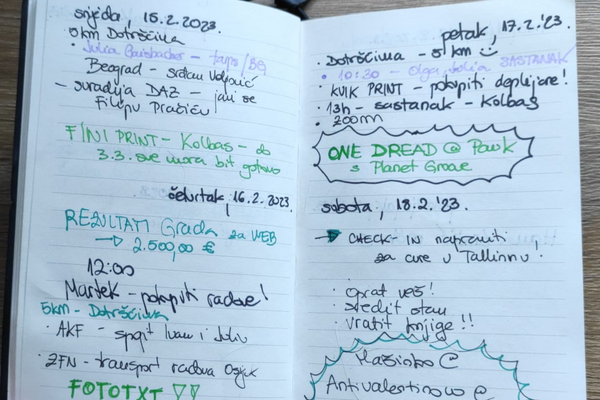 srijeda, 15.2.2023.
5km Dotrščina
• Julia Gaisbacher - /BG
Beograd - srđan
- suradnja DAZ - javi se
Filipu Pračiću
FINI PRINT - Kolbas - do
3.3. sve mora bit gotovo
četvrtak, 16.2.2023.
REZULTATI Grada za WEB
→ 2.500,00 €
12:00
Martek - pokupiti radove!
5km - Dotrščina
• AKF - spojit Ivan i Juliu
• ZFN - transport radova Osijek
FOTOTXT
petak, 17.2.'23.
• Dotrščina - 5km
• 10:30 - Olga, Julia SASTANAK
• KVIK PRINT - pokupiti deplijane!
• 13h - sastanak - Kolbas
• 200mn
ONE DREAD @ Pauk
s Planet Groove
subota, 18.2.'23.
→ CHECK-IN napraviti,
za cure u Tallinnu.
• oprat veš!
• sredit stan
• vratit knjige!!
Mažinho @
Antivalentinovo @